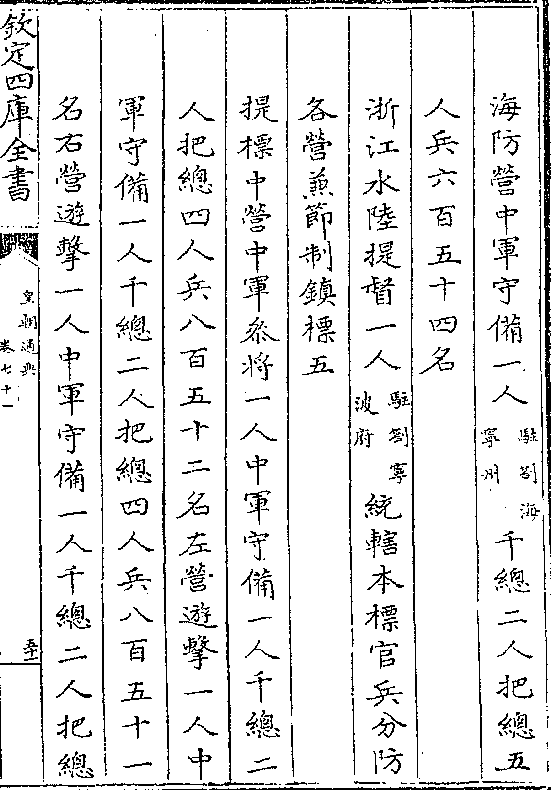 海防營中軍守備一人駐劄海寧州千總二人把總五
人兵六百五十四名
浙江水陸提督一人駐劄寧波府統轄本標官兵分防
各營兼節制鎮標五
提標中營中軍叅將一人中軍守備一人千總二
人把總四人兵八百五十二名左營遊擊一人中
軍守備一人千總二人把總四人兵八百五十一
名右營遊擊一人中軍守備一人千總二人把總
欽定四庫全書
皇朝通典
卷七十一